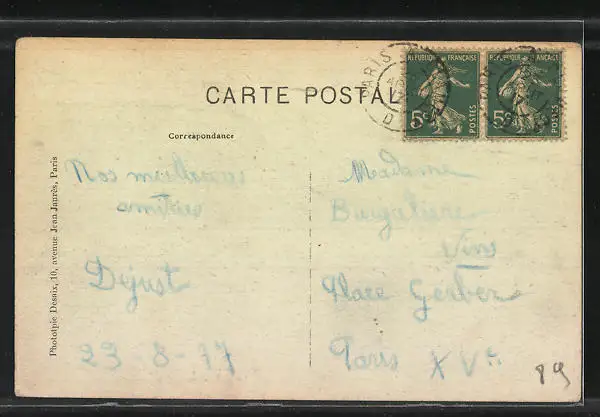 CARTE POSTALE
REPUBLIQUE FRANÇAISE
5c POSTES
REPUBLIQUE FRANÇAISE
5c POSTES
PARIS
Correspondance
Nos meilleures
amitiés
Dejust
23-8-17
Madame
Vins
Place Gerber
Paris XVe
Phototpie Desaix, 10, avenue Jean Jaurès, Paris
89